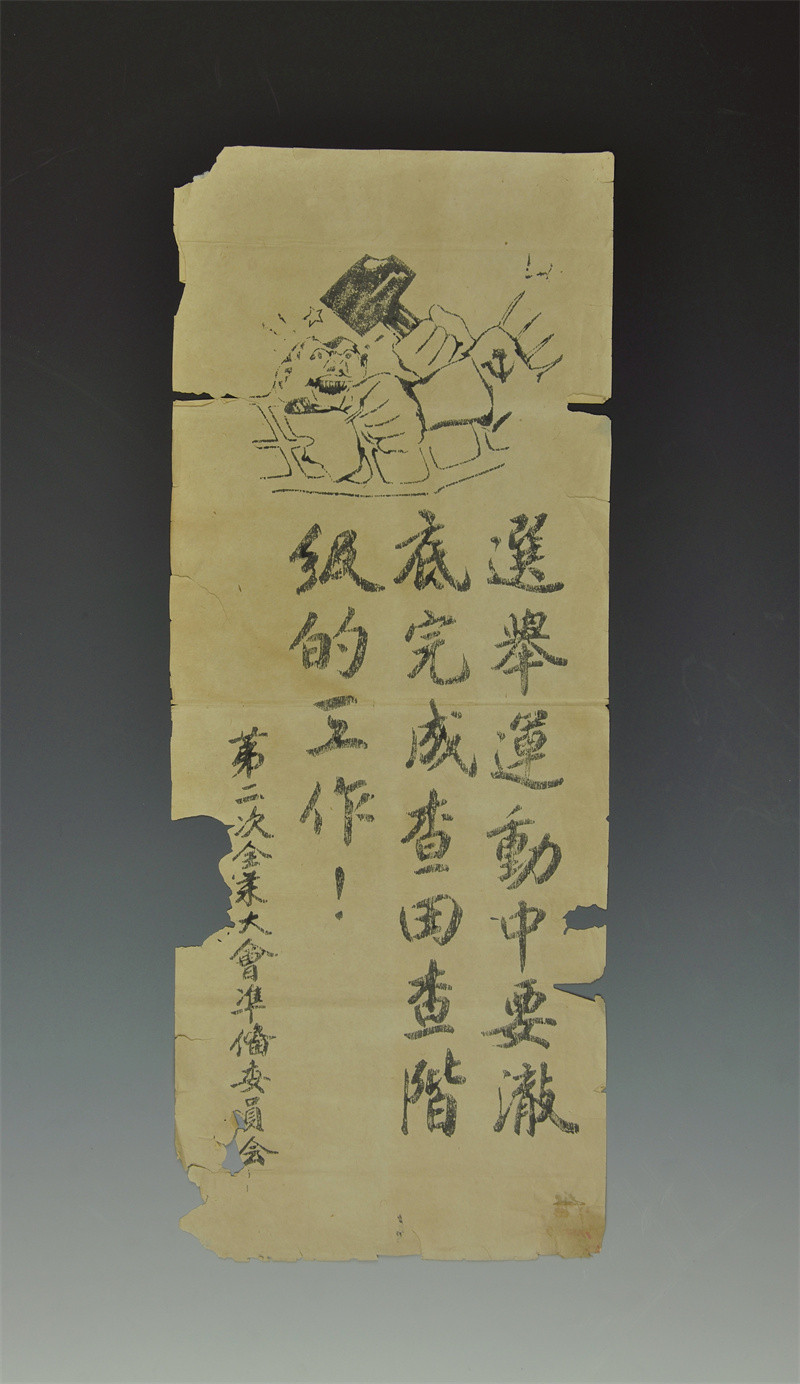 選舉運動中要澈
底完成查田查階
級的工作！
第二次全蘇大會準備委員会